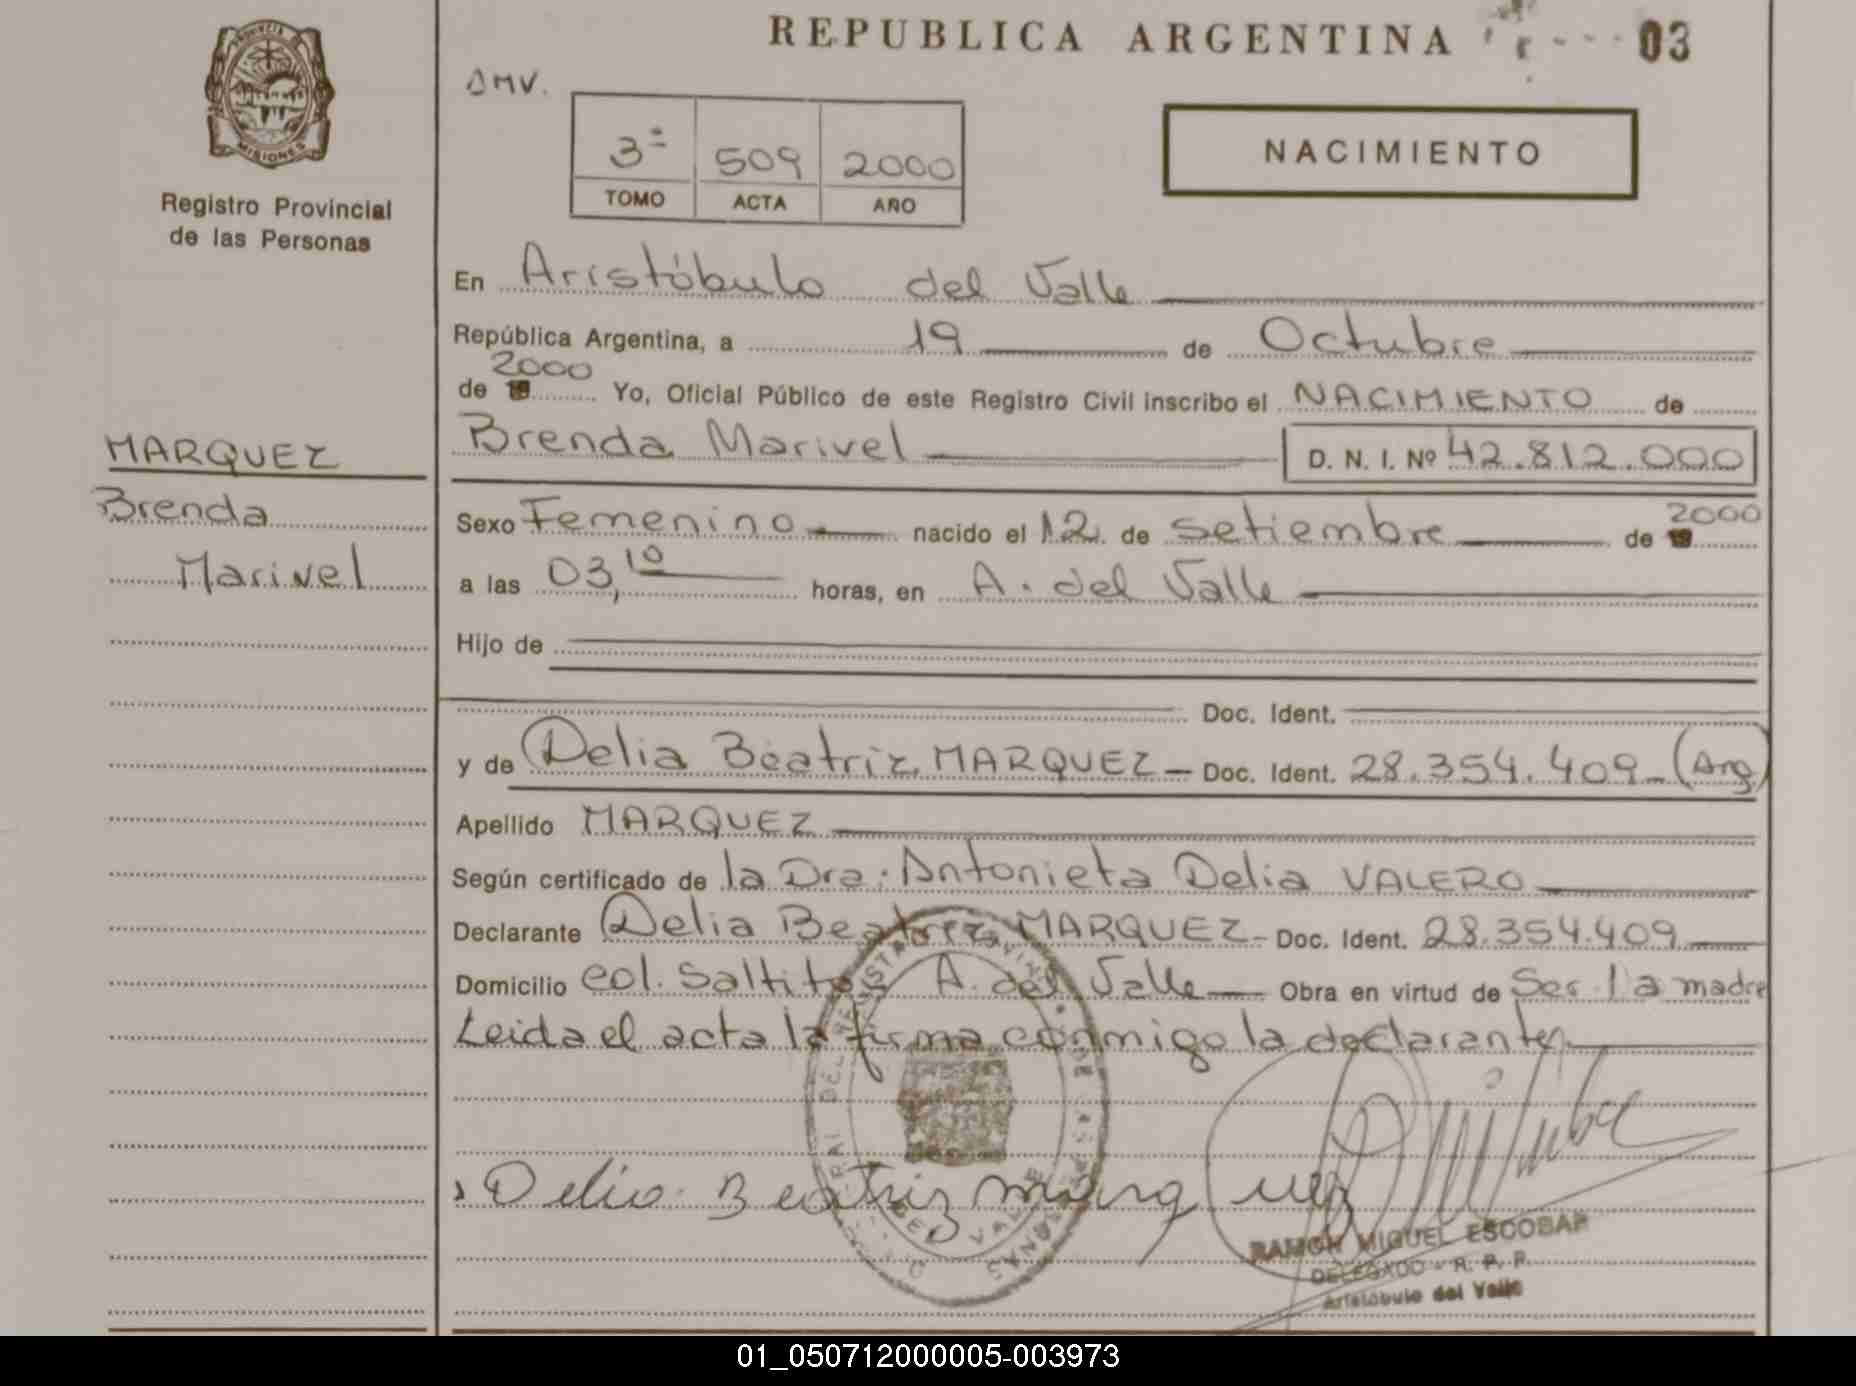 REPUBLICA ARGENTINA
03
PROVINCIA DE
MISIONES
Registro Provincial
de las Personas
DMV.
3ª 509 2000
TOMO ACTA AÑO
NACIMIENTO
En Aristóbulo del Valle
República Argentina, a 19 de Octubre
2000
de 19 Yo, Oficial Público de este Registro Civil inscribo el NACIMIENTO de
MARQUEZ
Brenda Marivel D. N. I. Nº 42.812.000
Brenda
Marivel
Sexo Femenino nacido el 12 de setiembre de 19 2000
a las 03,10 horas, en A. del Valle
Hijo de
Doc. Ident.
y de Delia Beatriz MARQUEZ - Doc. Ident. 28.354.409 (Arg)
Apellido MARQUEZ
Según certificado de la Dra. Antonieta Delia VALERO
Declarante Delia Beatriz MARQUEZ - Doc. Ident. 28.354.409
Domicilio col. Saltito A. del Valle Obra en virtud de Ser la madre
Leida el acta la firma conmigo la declarante
Delia Beatriz Marquez
RAMON MIGUEL ESCOBAR
DELEGADO - R. P. P.
Aristóbulo del Valle
01_050712000005-003973